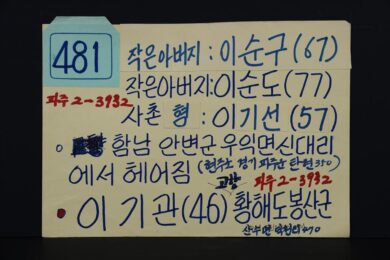 481
작은아버지 : 이순구(67)
파주 2-3932
작은아버지:이순도(77)
사촌 형 : 이기선(57)
함남 안변군 우익면신대리
(현주소 경기 파주군 탄현 350)
에서 헤어짐 고향 파주 2-3932
이기관(46) 황해도봉산군
산수면